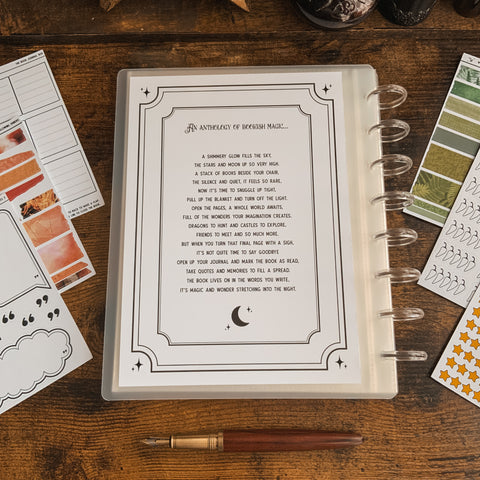 AN ANTHOLOGY OF BOOKISH MAGIC...
A SHIMMERY GLOW FILLS THE SKY,
THE STARS AND MOON UP SO VERY HIGH.
A STACK OF BOOKS BESIDE YOUR CHAIR,
THE SILENCE AND QUIET, IT FEELS SO RARE,
NOW IT'S TIME TO SNUGGLE UP TIGHT,
PULL UP THE BLANKET AND TURN OFF THE LIGHT.
OPEN THE PAGES, A WHOLE WORLD AWAITS,
FULL OF THE WONDERS YOUR IMAGINATION CREATES.
DRAGONS TO HUNT AND CASTLES TO EXPLORE,
FRIENDS TO MEET AND SO MUCH MORE.
BUT WHEN YOU TURN THAT FINAL PAGE WITH A SIGH,
IT'S NOT QUITE TIME TO SAY GOODBYE.
OPEN UP YOUR JOURNAL AND MARK THE BOOK AS READ,
TAKE QUOTES AND MEMORIES TO FILL A SPREAD.
THE BOOK LIVES ON IN THE WORDS YOU WRITE,
IT'S MAGIC AND WONDER STRETCHING INTO THE NIGHT.